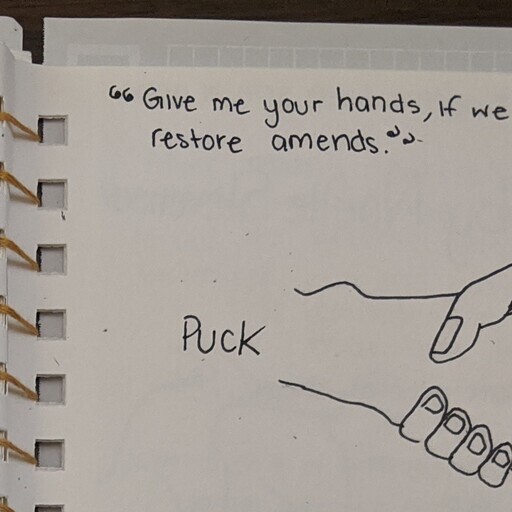 “Give me your hands, if we
restore amends.”
Puck